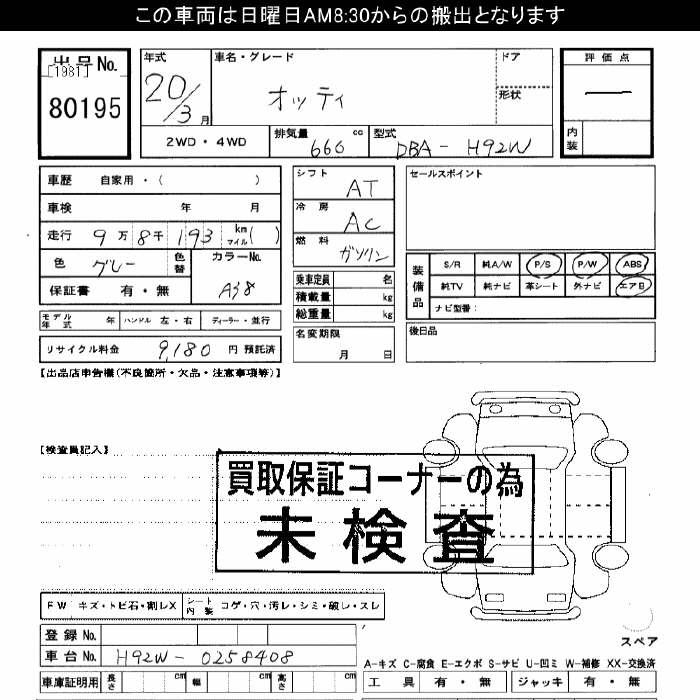 この車両は日曜日AM8:30からの搬出となります
出品No.
[1981]
80195
年式
20/3月
車名・グレード
オッティ
ドア
形状
評価点
—
内装
2WD・4WD
排気量 660 cc
型式 DBA - H92W
車歴 自家用・( )
車検 年 月
走行 9万8千193 km マイル( )
色 グレー 色替
カラーNo.
保証書 有・無
シフト AT
冷房 AC
燃料 ガソリン
乗車定員 名
積載量 kg
総重量 kg
名変期限
月 日
セールスポイント
装備品
S/R 純A/W P/S P/W ABS
純TV 純ナビ 革シート 外ナビ エアB
ナビ型番:
後日品
モデル年式 年 ハンドル 左・右 ディーラー・並行
リサイクル料金 9,180 円 預託済
【出品店申告欄(不良箇所・欠品・注意事項等)】
【検査員記入】
買取保証コーナーの為
未検査
FW キズ・トビ石・割レX シート内装 コゲ・穴・汚レ・シミ・破レ・スレ
登録No.
車台No. H92W - 0258408
車庫証明用 長さ cm 幅 cm 高さ cm
スペア
A-キズ C-腐食 E-エクボ S-サビ U-凹ミ W-補修 XX-交換済
工具 有・無 ジャッキ 有・無